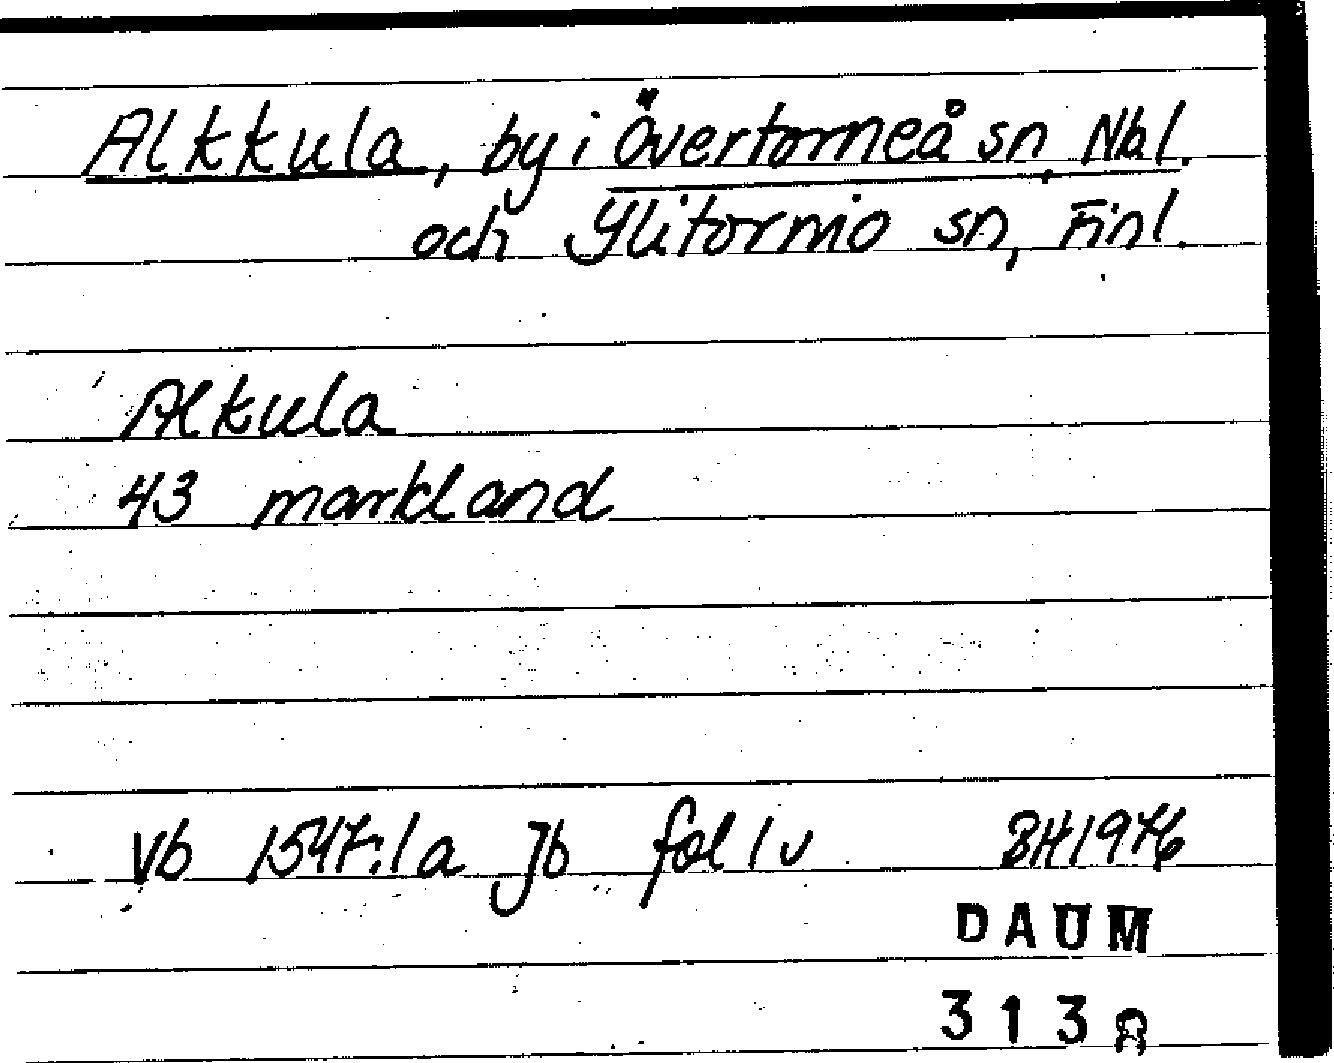 Alkkula, by i Övertorneå sn, Nbl.
och Ylitornio sn, Finl.
Alkula
43 markland
Vb 1547:1a Jb fol 1v BH1976
DAUM
3138